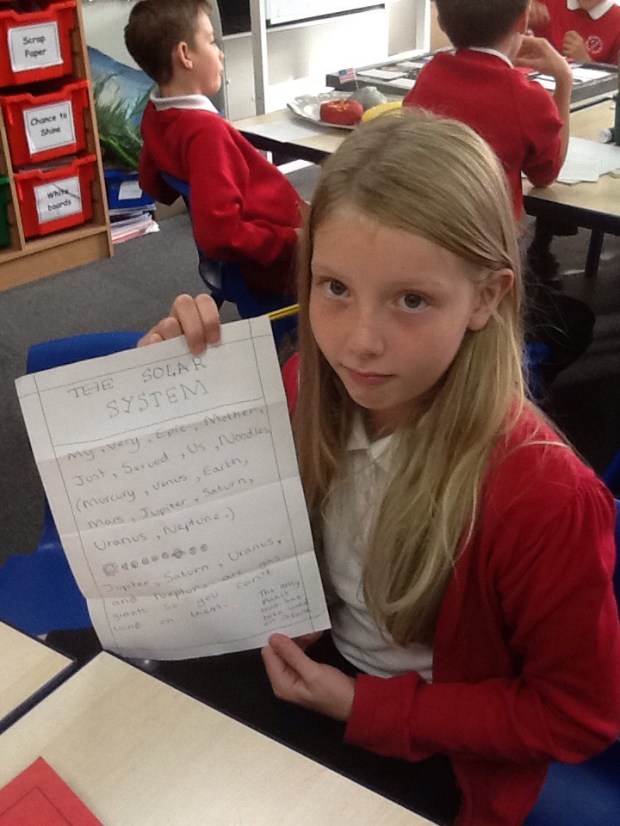 Scrap
Paper
Chance to
Shine
White
boards
THE SOLAR
SYSTEM
My, Very, Epic, Mother,
Just, Served, Us, Noodles
(Murcury, Venus, Earth,
Mars, Jupiter, Saturn,
Uranus, Neptune.)
Jupiter, Saturn, Uranus,
and Neptune are gas
giants so you can't
land on them.
The only
Planet
that has
been